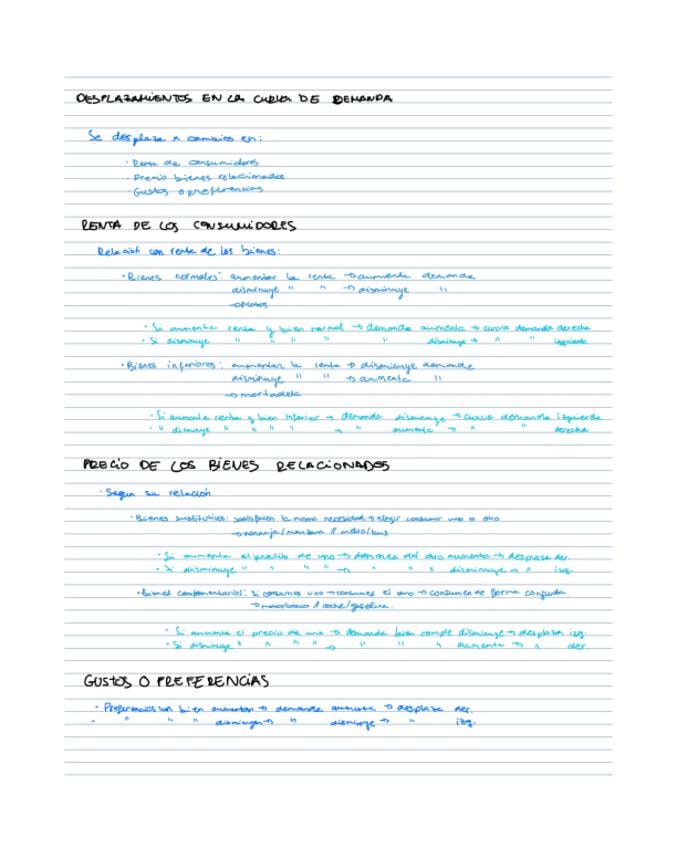 DESPLAZAMIENTOS EN LA CURVA DE DEMANDA
Se desplaza x cambios en:
· Renta de consumidores
· Precio bienes relacionados
· Gustos o preferencias
RENTA DE LOS CONSUMIDORES
Relación con renta de los bienes:
· Bienes normales: aumentar la renta → aumenta demanda
disminuye " " → disminuye "
· Si aumenta renta y bien normal → demanda aumenta → curva demanda derecha
· Si disminuye " " " " " disminuye → " " izquierda
· Bienes inferiores: aumentar la renta → disminuye demanda
disminuye " " → aumenta "
→ mortadela
· Si aumenta renta y bien inferior → demanda disminuye → curva demanda izquierda
· " disminuye " " " " → " aumenta → " " derecha
PRECIO DE LOS BIENES RELACIONADOS
· Segun su relación
· Bienes sustitutivos: satisfacen la misma necesidad → elegir consumir uno u otro
→ naranja/manzana // metro/bus
· Si aumenta el precio de uno → demanda del otro aumenta → desplaza der.
· Si disminuye " " " → " " " disminuye → " izq.
· Bienes complementarios: si consumes uno → consumes el otro → consumen de forma conjunta
// coche/gasolina.
· Si aumenta el precio de uno → demanda bien comple disminuye → desplaza izq.
· Si disminuye " " " " → " " " aumenta → " der.
GUSTOS O PREFERENCIAS
· Preferencias un bien aumentan → demanda aumenta → desplaza der.
· " " " disminuyen → " disminuye → " izq.